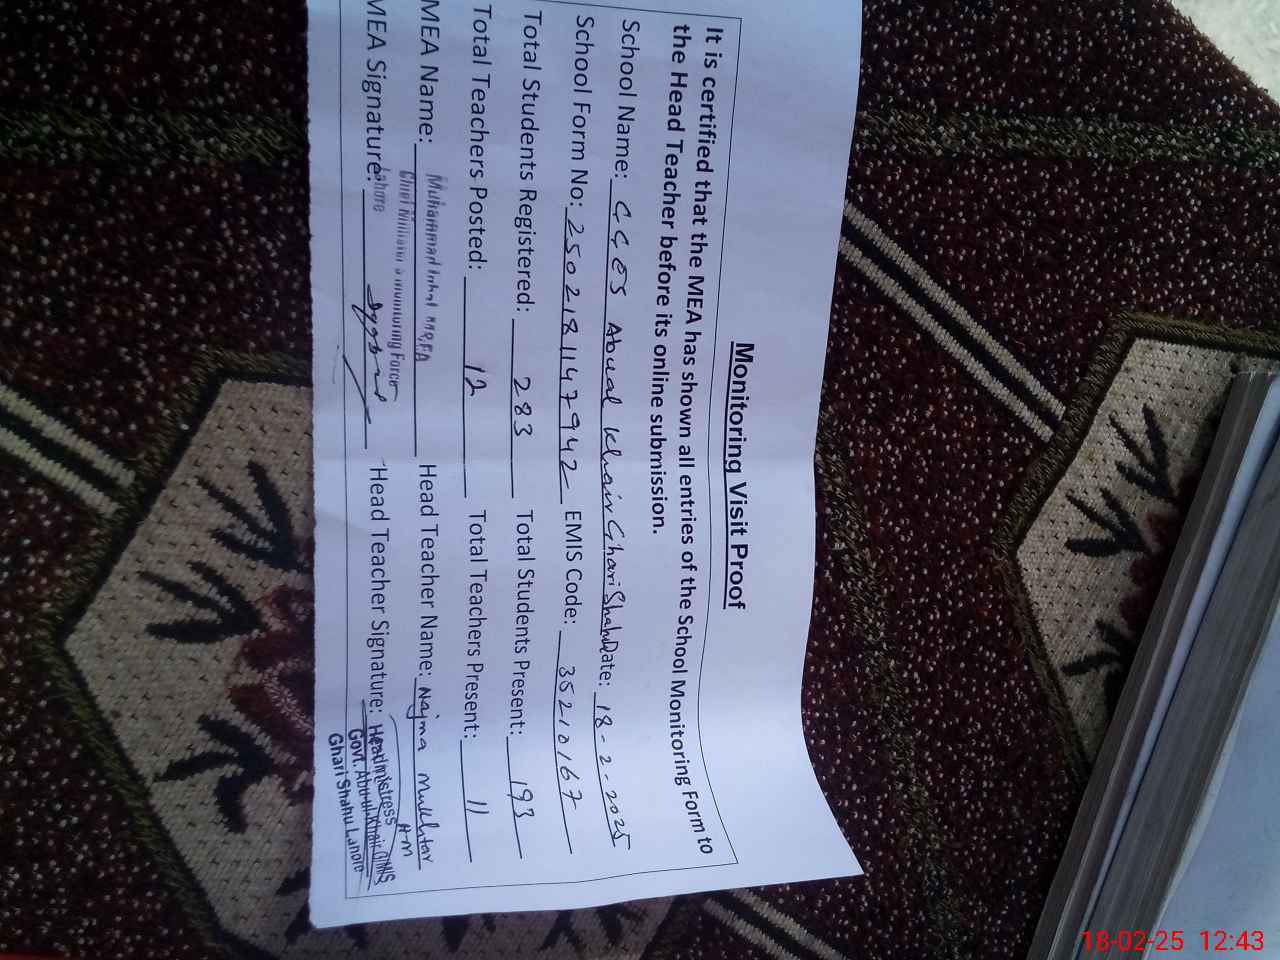 Monitoring Visit Proof
It is certified that the MEA has shown all entries of the School Monitoring Form to
the Head Teacher before its online submission.
School Name: GGES Abual Khair Ghari Shahu Date: 18-2-2025
School Form No: 2502181147942 EMIS Code: 35210167
Total Students Registered: 283 Total Students Present: 193
Total Teachers Posted: 12 Total Teachers Present: 11
MEA Name: Muhammad Head Teacher Name: Najma Mukhtar
Chief Minister's Monitoring Force
MEA Signature: Lahore Head Teacher Signature: Headmistress
H-M
Govt. Abu-ul-Khair
Ghari Shahu Lahore
18-02-25 12:43